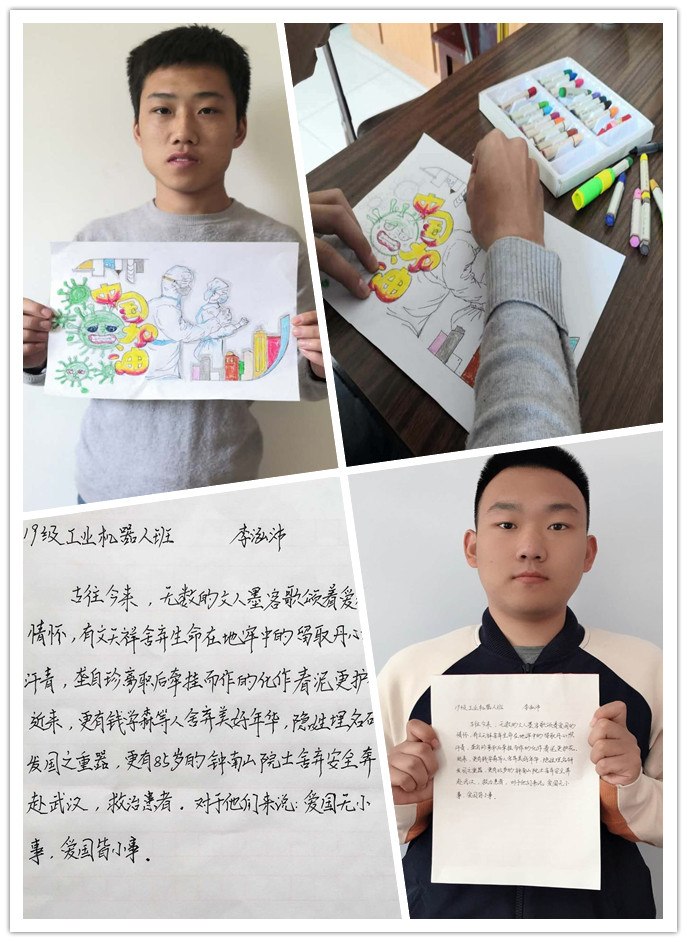 中国加油
中国加油
19级工业机器人班 李泓沛
古往今来，无数的文人墨客歌颂着爱
情怀，有文天祥舍弃生命在地牢中的留取丹心
汗青，龚自珍离职后牵挂而作的化作春泥更护
近来，更有钱学森等人舍弃美好年华，隐姓埋名
发国之重器，更有85岁的钟南山院士舍弃安全奔
赴武汉，救治患者。对于他们来说：爱国无小
事，爱国皆小事。
19级工业机器人班 李泓沛
古往今来，无数的文人墨客歌颂着爱国的
情怀，有文天祥舍弃生命在地牢中的留取丹心照
汗青，龚自珍离职后牵挂而作的化作春泥更护花。
近来，更有钱学森等人舍弃美好年华，隐姓埋名研
发国之重器，更有85岁的钟南山院士舍弃安全奔
赴武汉，救治患者。对于他们来说：爱国无小
事，爱国皆小事。